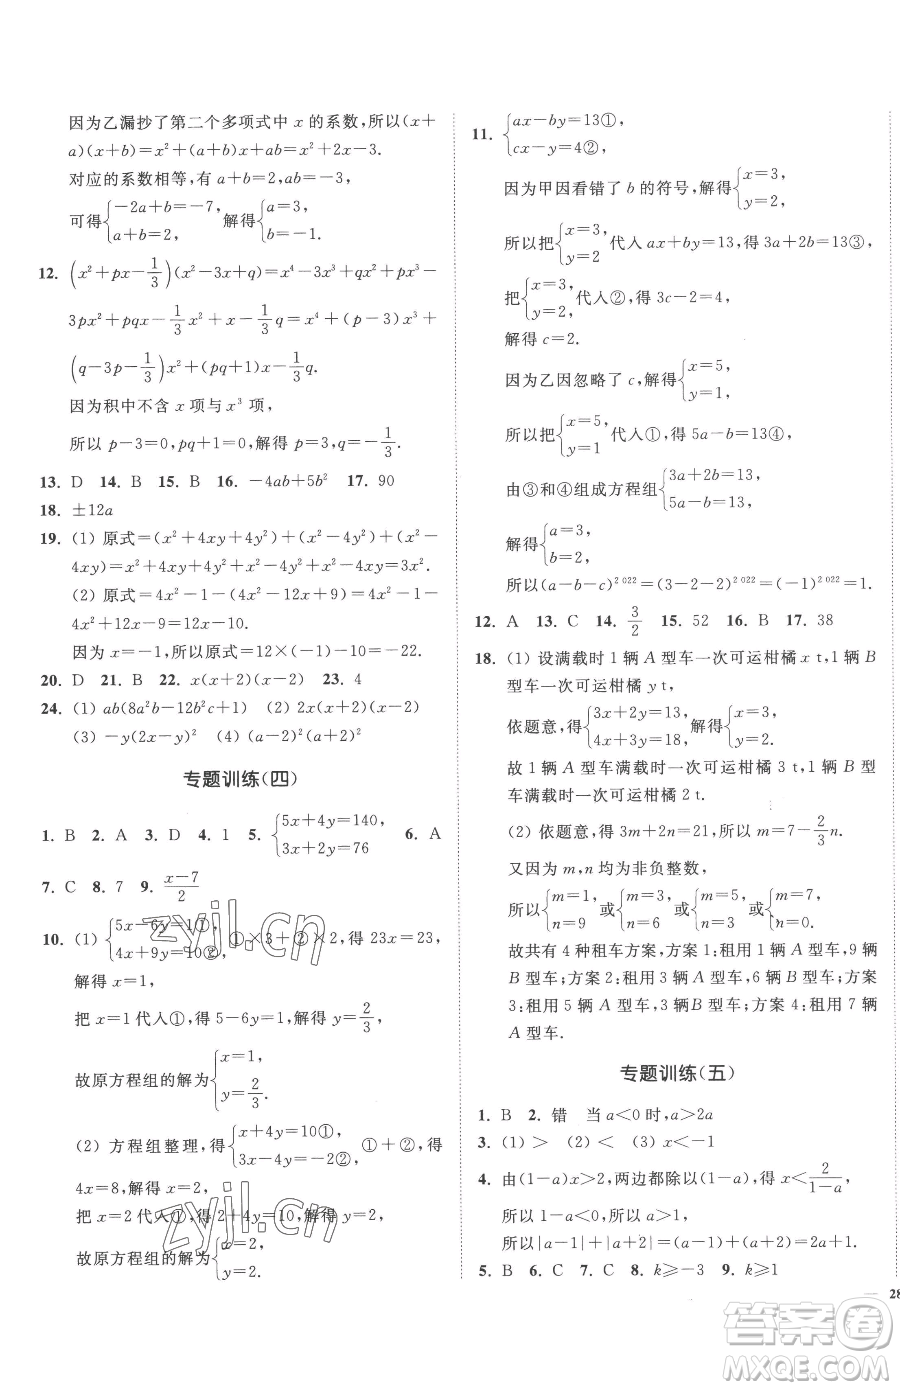 因为乙漏抄了第二个多项式中 x 的系数,所以(x+
a)(x+b)=x²+(a+b)x+ab=x²+2x-3.
对应的系数相等,有 a+b=2,ab=-3,
可得{-2a+b=-7, a+b=2, 解得{a=3, b=-1.
12. (x²+px-1/3)(x²-3x+q)=x⁴-3x³+qx²+px³-
3px²+pqx-1/3x²+x-1/3q=x⁴+(p-3)x³+
(q-3p-1/3)x²+(pq+1)x-1/3q.
因为积中不含 x 项与 x³ 项,
所以 p-3=0,pq+1=0,解得 p=3,q=-1/3.
13. D 14. B 15. B 16. -4ab+5b² 17. 90
18. ±12a
19. (1) 原式=(x²+4xy+4y²)+(x²-4y²)+(x²-
4xy)=x²+4xy+4y²+x²-4y²+x²-4xy=3x².
(2) 原式=4x²-1-(4x²-12x+9)=4x²-1-
4x²+12x-9=12x-10.
因为 x=-1,所以原式=12×(-1)-10=-22.
20. D 21. B 22. x(x+2)(x-2) 23. 4
24. (1) ab(8a²b-12b²c+1) (2) 2x(x+2)(x-2)
(3) -y(2x-y)² (4) (a-2)²(a+2)²
专题训练(四)
1. B 2. A 3. D 4. 1 5. {5x+4y=140, 3x+2y=76 6. A
7. C 8. 7 9. (x-7)/2
10. (1) {5x-6y=1①, 4x+9y=10②, ①×3+②×2,得 23x=23,
解得 x=1,
把 x=1 代入①,得 5-6y=1,解得 y=2/3,
故原方程组的解为{x=1, y=2/3.
(2) 方程组整理,得{x+4y=10①, 3x-4y=-2②, ①+②,得
4x=8,解得 x=2,
把 x=2 代入①,得 2+4y=10,解得 y=2,
故原方程组的解为{x=2, y=2.
11. {ax-by=13①, cx-y=4②,
因为甲因看错了 b 的符号,解得{x=3, y=2,
所以把{x=3, y=2 代入 ax+by=13,得 3a+2b=13③,
把{x=3, y=2 代入②,得 3c-2=4,
解得 c=2.
因为乙因忽略了 c,解得{x=5, y=1,
所以把{x=5, y=1 代入①,得 5a-b=13④,
由③和④组成方程组{3a+2b=13, 5a-b=13,
解得{a=3, b=2.
所以(a-b-c)²⁰²²=(3-2-2)²⁰²²=(-1)²⁰²²=1.
12. A 13. C 14. 3/2 15. 52 16. B 17. 38
18. (1) 设满载时 1 辆 A 型车一次可运柑橘 x t,1 辆 B
型车一次可运柑橘 y t,
依题意,得{3x+2y=13, 4x+3y=18, 解得{x=3, y=2.
故 1 辆 A 型车满载时一次可运柑橘 3 t,1 辆 B 型
车满载时一次可运柑橘 2 t.
(2) 依题意,得 3m+2n=21,所以 m=7-2/3n.
又因为 m,n 均为非负整数,
所以{m=1, n=9 或{m=3, n=6 或{m=5, n=3 或{m=7, n=0.
故共有 4 种租车方案,方案 1:租用 1 辆 A 型车,9 辆
B 型车;方案 2:租用 3 辆 A 型车,6 辆 B 型车;方案
3:租用 5 辆 A 型车,3 辆 B 型车;方案 4:租用 7 辆
A 型车.
专题训练(五)
1. B 2. 错 当 a<0 时,a>2a
3. (1) > (2) < (3) x<-1
4. 由(1-a)x>2,两边都除以(1-a),得 x<2/(1-a),
所以 1-a<0,所以 a>1,
所以|a-1|+|a+2|=(a-1)+(a+2)=2a+1.
5. B 6. C 7. C 8. k≥-3 9. k≥1
28
zyjl.cn
zyjl.cn
答案圈
MXQE.COM